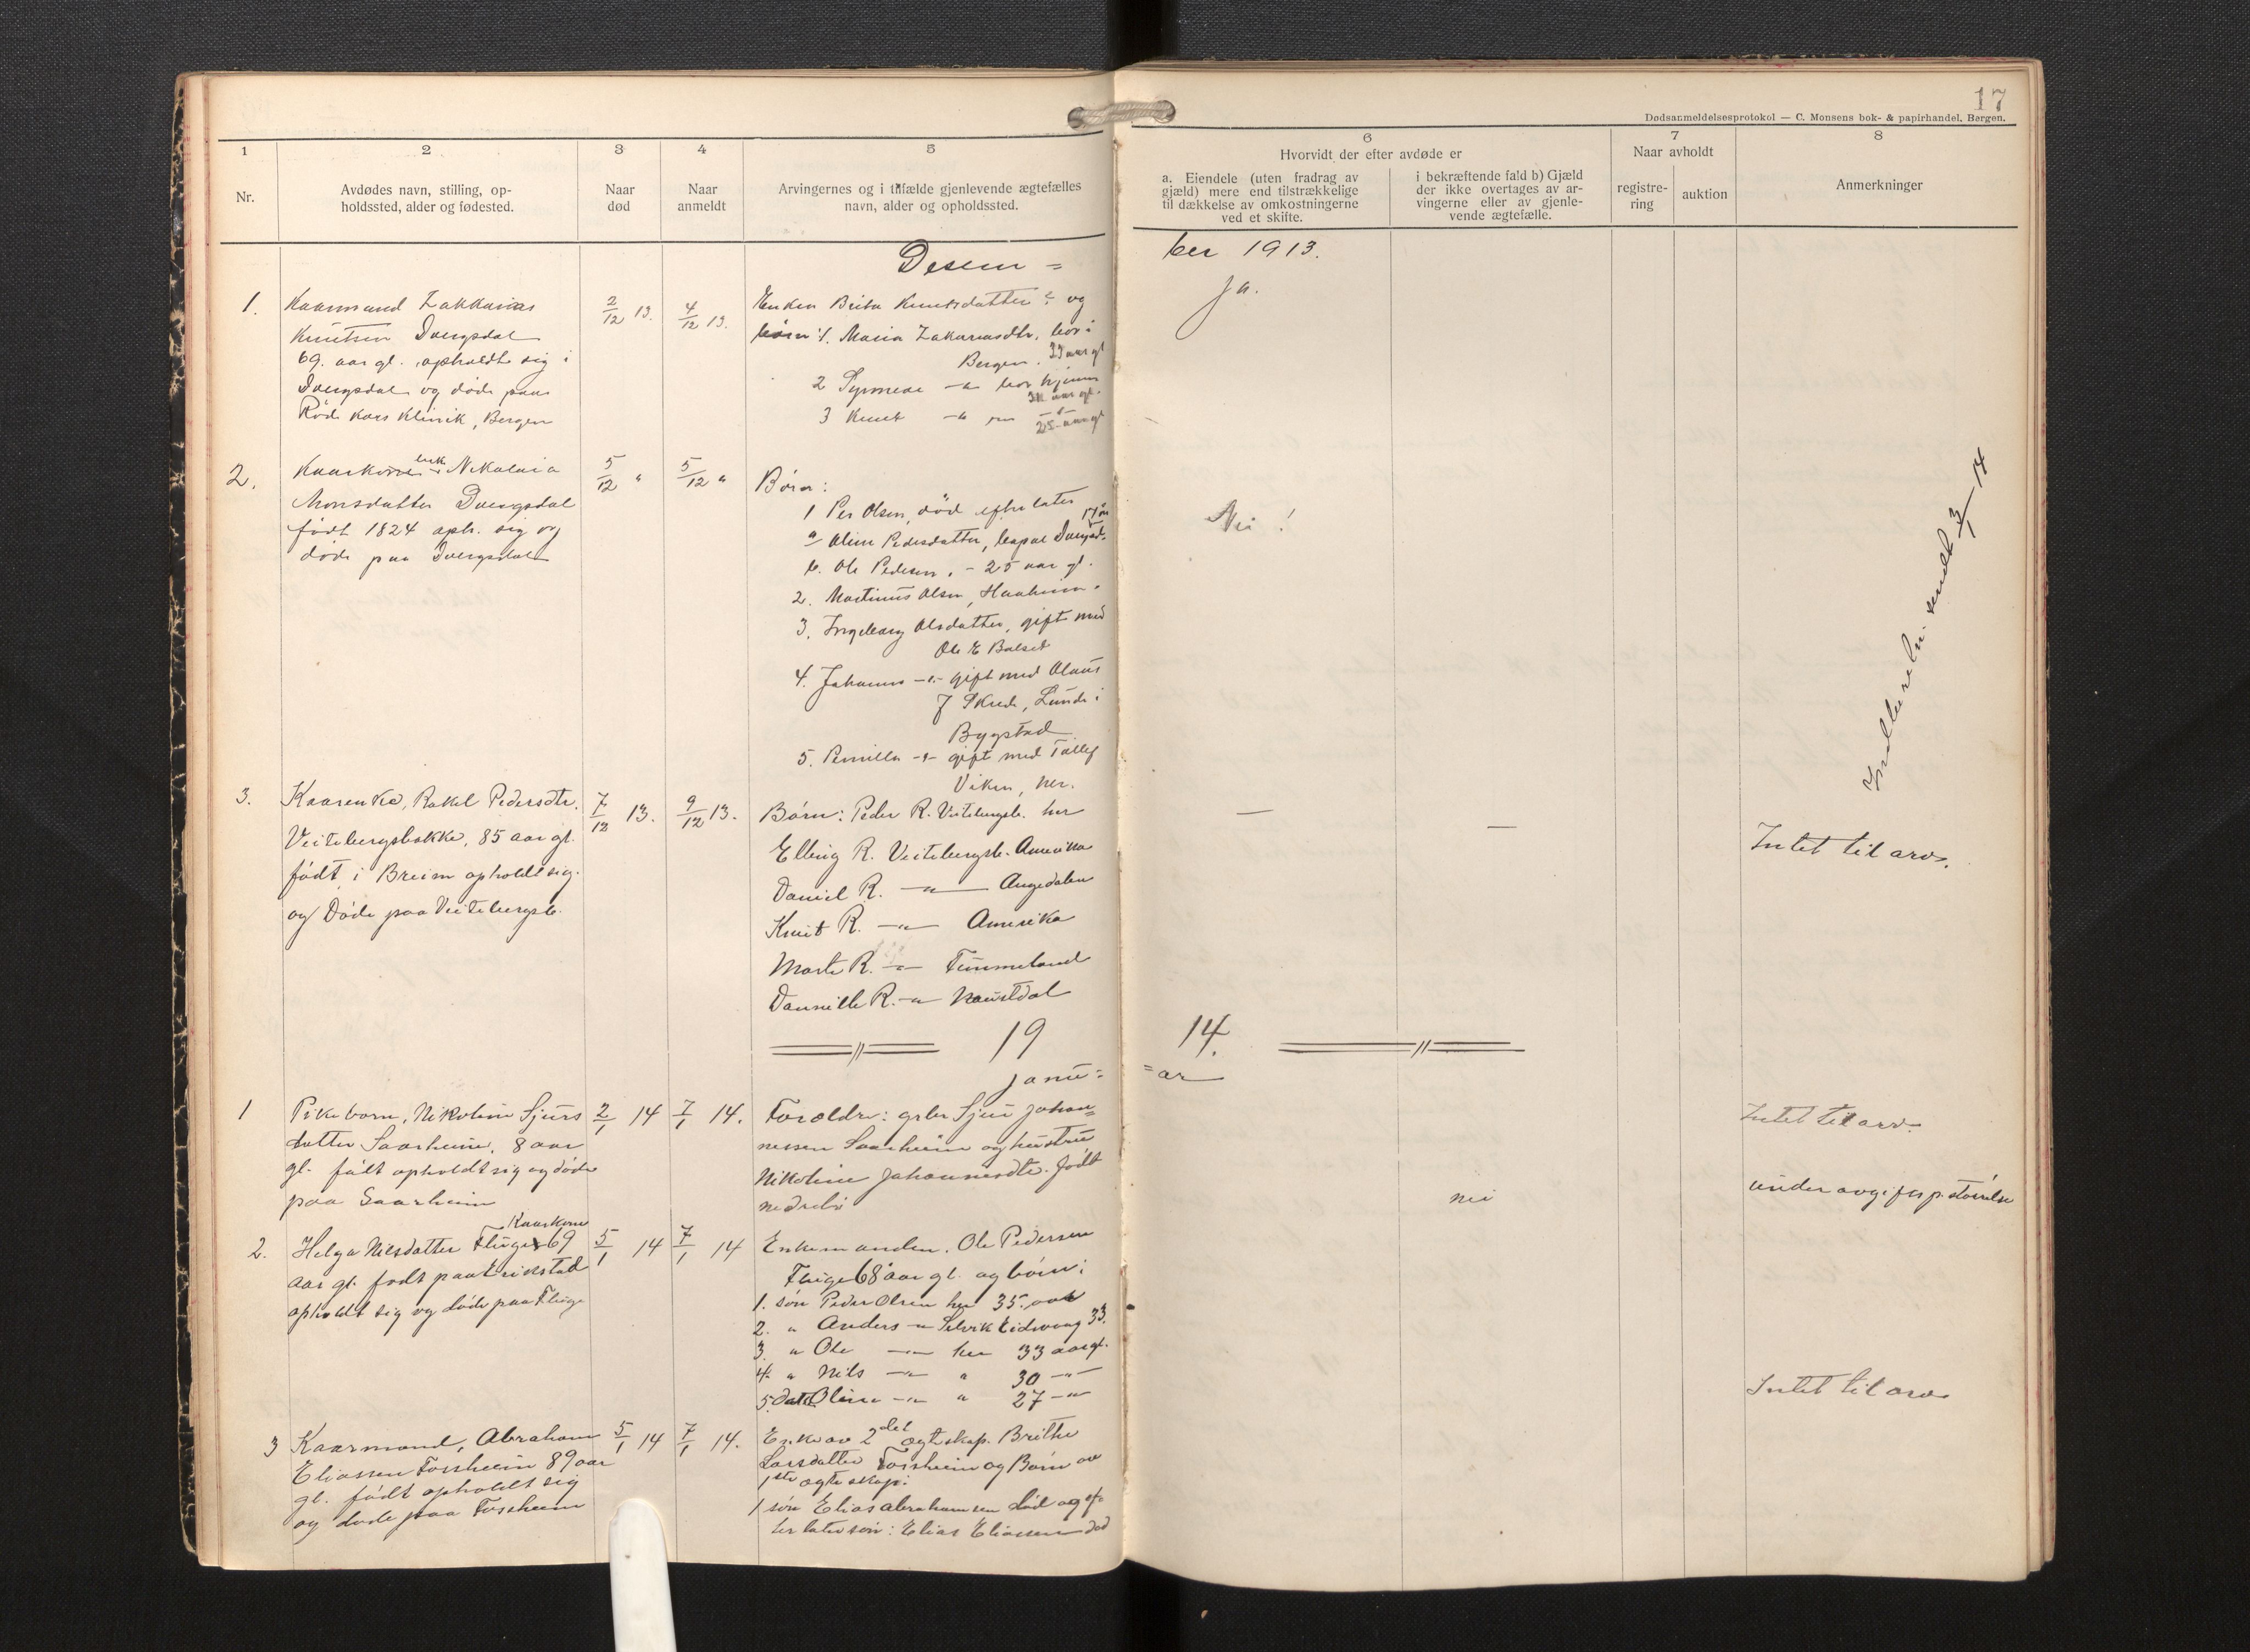 17
Dødsanmeldelsesprotokol — C. Monsens bok- & papirhandel, Bergen.
1
Nr.
2
Avdødes navn, stilling, op-
holdssted, alder og fødested.
3
Naar
død
4
Naar
anmeldt
5
Arvingernes og i tilfælde gjenlevende ægtefælles
navn, alder og opholdssted.
6
Hvorvidt der efter avdøde er
a. Eiendele (uten fradrag av
gjæld) mere end tilstrækkelige
til dækkelse av omkostningerne
ved et skifte.
i bekræftende fald b) Gjæld
der ikke overtages av ar-
vingerne eller av gjenle-
vende ægtefælle.
7
Naar avholdt
registre-
ring
auktion
8
Anmerkninger
Desem =
ber 1913.
1.
Kaarmand Zakkarias
Knutsen Dvergsdal
69. aar gl. opholdt sig i
Dvergsdal og døde paa
Røde kors klinik, Bergen
2/12 13.
4/12 13.
Enken Brita Knutsdatter og
børn 1. Maria Zakariasdtr. bor i
Bergen. 33 aar gl
2 Synneve -"- bor hjemme
aar gl.
3 Knut -"- -"-
25 aar gl
Ja.
2.
Kaarkone enke Nikolaia
Monsdatter Dvergsdal
født 1824 oph. sig og
døde paa Dvergsdal
5/12 "
5/12 "
Børn:
1 Per Olsen, død efterlater
a Oline Pedersdatter,
b. Ole Pedersen, - 25 aar gl.
2. Martinus Olsen,
3. Ingeborg Olsdatter, gift med
Ole E Bolset
4. Johanne -"- gift med Olaus
J Skrede, Lunde i
Bygstad
5. Pernilla -"- gift med Tollef
Viken, her.
Nei!
sendt 3/1 14
3.
Kaarenke, Rakel Pedersdtr.
Veitebergsbakke, 85 aar gl.
født i Breim opholdt sig
og Døde paa Veitebergsb.
7/12 13.
9/12 13.
Børn: Peder R. Veitebergsb. her
Elling R. Veitebergsb. Amerika
Daniel R. —"— Angedalen
Knut R. —"— Amerika
Marte R. —"— Timmeland
Dannille R. —"— Naustdal
—
—
Intet til arv.
19
14.
Janu=
=ar
1
Pikebarn, Nikoline Sjurs
datter Saarheim, 8 aar
gl. født opholdt sig og døde
paa Saarheim
2/1 14
7/1 14.
Foræeldre: grbr Sjur Johan=
nessen Saarheim og hustru
Nikoline Johannesdtr. født
nedrebø
Intet til arv.
2.
Kaarkone
Helga Nilsdatter Fluge 69
aar gl. født paa Erikstad
opholdt sig og døde paa Fluge
5/1 14
7/1 14
Enkemanden. Ole Pedersen
Fluge 68 aar gl. og børn:
1. søn Peder Olsen her 35. aar
2. " Anders -"- Selvik Eidsvaag 33.
3. " Ole -"- her 33 aar gl.
4. " Nils -"- " 30 -"-
5. datt Oline -"- " 27 -"-
nei
under avgifsp. størrelse
3
Kaarmand, Abraham
Eliassen Forsheim 89 aar
gl. født opholdt sig
og døde paa Forsheim
5/1 14
7/1 14.
Enke av 2det ægteskap. Brithe
Larsdatter Forsheim og Børn av
1ste ægteskap:
1 søn Elias Abrahamsen død og ef=
terlater søn: Elias Eliassen død
Intet til arv